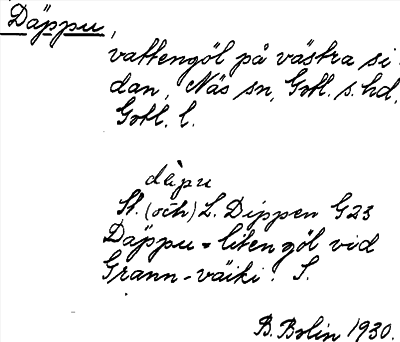 Däppu,
vattengöl på västra si-
dan, Näs sn, Gotl. s. hd,
Gotl. l.
däpu
St. (och) L. Dippen G23
Däppu = liten göl vid
Grann-väiki. S.
B. Bolin 1930.